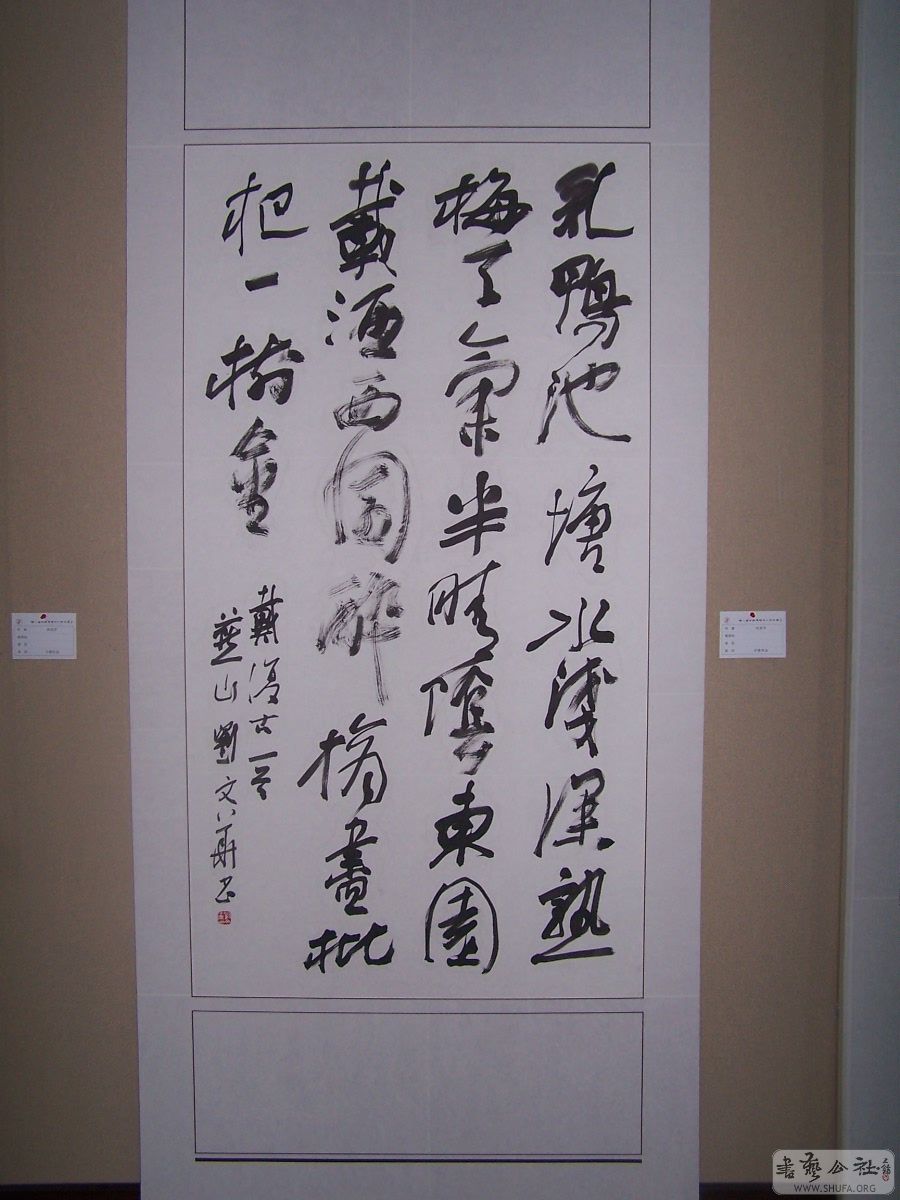 乳鴨池塘水淺深熟
梅天氣半晴陰東園
載酒西園醉摘盡枇
杷一樹金
戴復古一首
燕山劉文華书
書藝公社
WWW.SHUFA.ORG